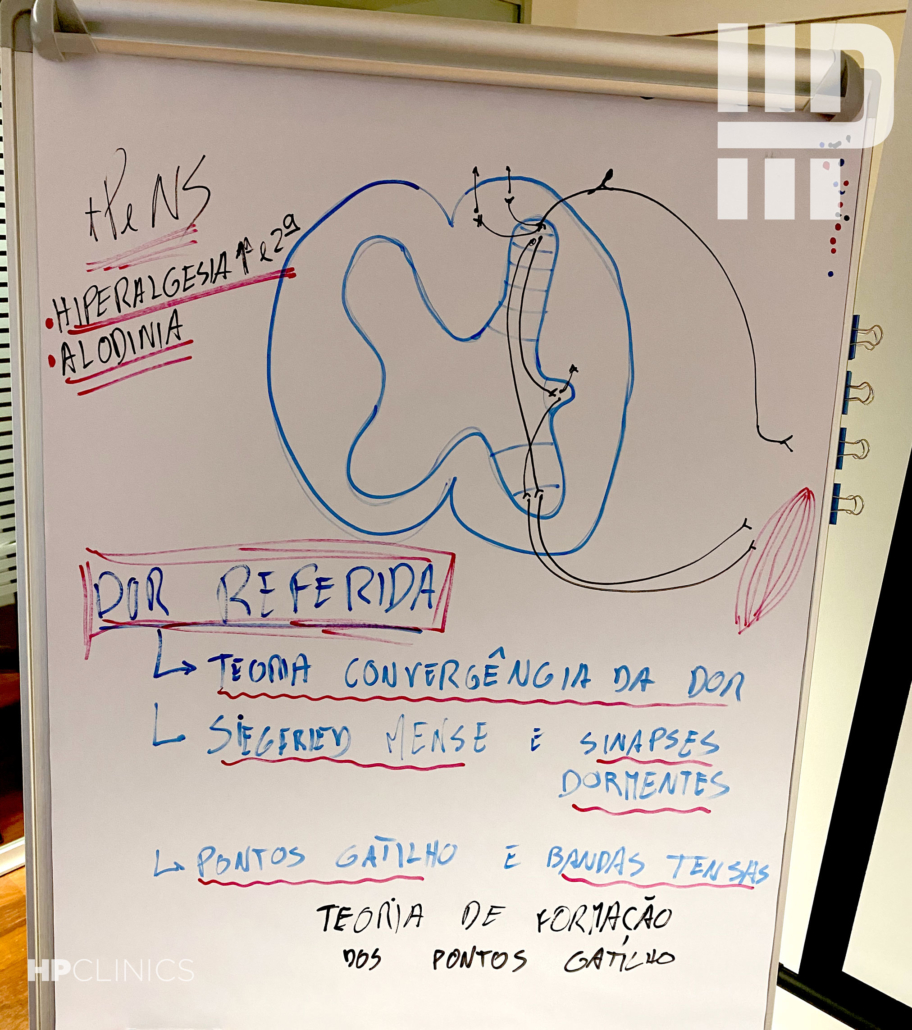 tPeNS
• HIPERALGESIA 1ª e 2ª
• ALODINIA
DOR REFERIDA
↳ TEORIA CONVERGÊNCIA DA DOR
SIEGFRIED MENSE E SINAPSES
DORMENTES
↳ PONTOS GATILHO E BANDAS TENSAS
TEORIA DE FORMAÇÃO
DOS PONTOS GATILHO
HPCLINICS